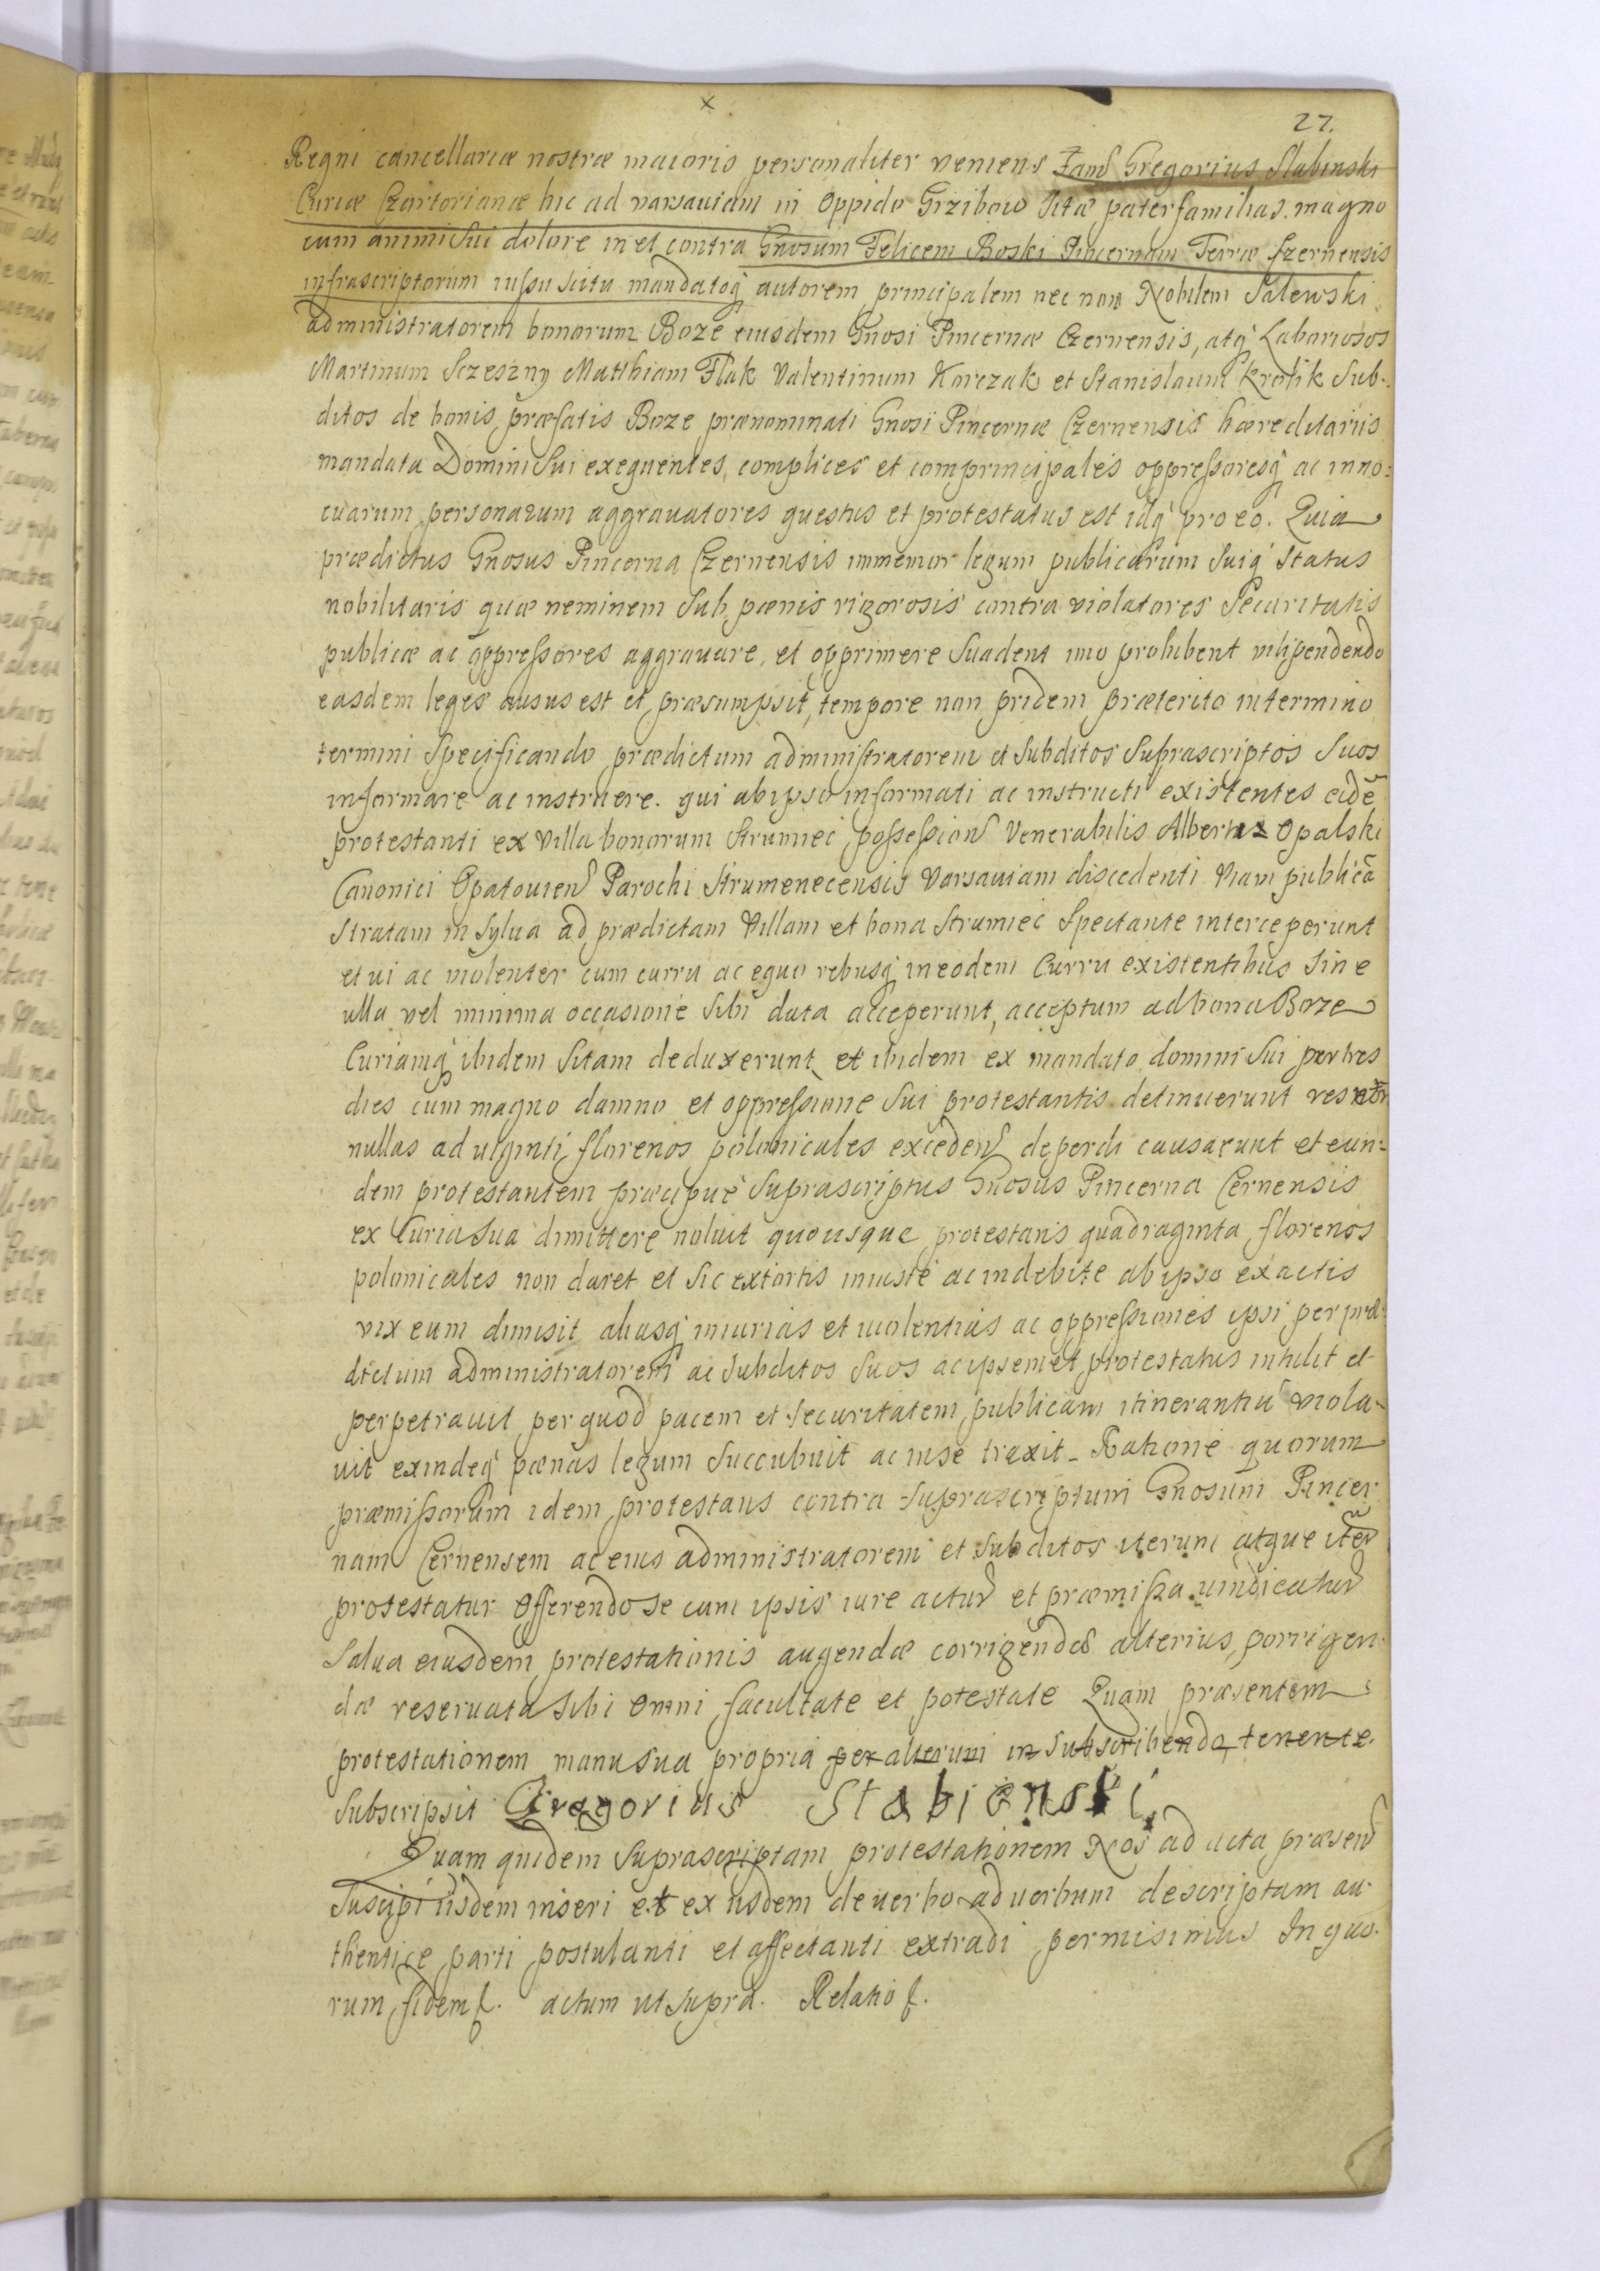 27.
Regni cancellariæ nostræ maioris personaliter veniens Fam͂ Gregorius Slabinski
Curiæ Czartorianæ hic ad varsauiam in Oppido Grzibow sitæ paterfamilias. magno
cum animi sui dolore in et contra Gnosum Felicem Boski Pincernam Terræ Czernensis
infrascriptorum iussu scitu mandatoq́ autorem principalem nec non Nobilem Salewski
administratorem bonorum Boze eiusdem Gnosi Pincernæ Czernensis, atq́ Laboriosos
Martinum Sczeszny Matthiam Flak Valentinum Korczak et Stanislaum Krolik Sub-
ditos de bonis præfatis Boze prænominati Gnosi Pincernæ Czernensis hæreditariis
mandata Domini sui exequentes, complices et comprincipales oppressoresq́ ac inno=
cuarum personarum aggrauatores questus et protestatus est idq́ pro eo. Quia
prædictus Gnosus Pincerna Czernensis immemor legum publicarum suiq́ status
nobilitaris quæ neminem sub pænis rigorosis contra violatores securitatis
publicæ ac oppressores aggrauare, et opprimere suadent imo prohibent vilipendendo
easdem leges ausus est et præsumpsit, tempore non pridem præterito in termino
termini specificando prædictum administratorem et subditos suprascriptos suos
informare ac instruere. qui ab ipso informati ac instructi existentes eidẽ
protestanti ex villa bonorum Strumiec possession͂ Venerabilis Albertus Opalski
Canonici Opatouien͂ Parochi Strumenecensis Varsauiam discedenti viam publicã
stratam in sylua ad prædictam villam et bona Strumiec spectante interceperunt
et ui ac violenter cum curru ac equo rebusq́ in eodem Curru existentibus sine
ulla vel minima occasione sibi data acceperunt, acceptum ad bona Boze
Curiamq́ ibidem sitam deduxerunt et ibidem ex mandato domini sui per tres
dies cum magno damno et oppressione sui protestantis detinuerunt res
nullas ad viginti florenos polonicales exceden͂ deperdi causarunt et eun=
dem protestantem præcipuè suprascriptus Gnosus Pincerna Cernensis
ex Curia sua dimittere noluit quousque protestans quadraginta florenos
polonicales non daret et sic extortis iniuste ac indebite ab ipso exactis
vix eum dimisit aliasq́ iniurias et violentias ac oppressiones ipsi per præ=
dictum administratorem ac subditos suos ac ipsemet protestatus intulit et
perpetrauit per quod pacem et securitatem publicam itinerantiũ viola-
uit exindeq́ pænas legum succubuit ac in se traxit - Ratione quorum
præmissorum idem protestans contra suprascriptum Gnosum Pincer
nam Cernensem ac eius administratorem et subditos iterum atque iterũ
protestatur Offerendo se cum ipsis iure actur͂ et præmissa uindicatur͂
Salua eiusdem protestationis augendæ corrigendæ alterius porrigen-
dæ reseruata sibi omni facultate et potestate Quam præsentem
protestationem manu sua propria per alterum in subscribendo tenente.
Subscripsit Gregorius Stabienski
Quam quidem suprascriptam protestationem Nos ad acta præsen͂
suscipi iisdem inseri et ex iisdem de uerbo ad uerbum descriptam au-
thentice parti postulanti et affectanti extradi permisimus In quo-
rum fidem f. actum ut supra. Relatio f.